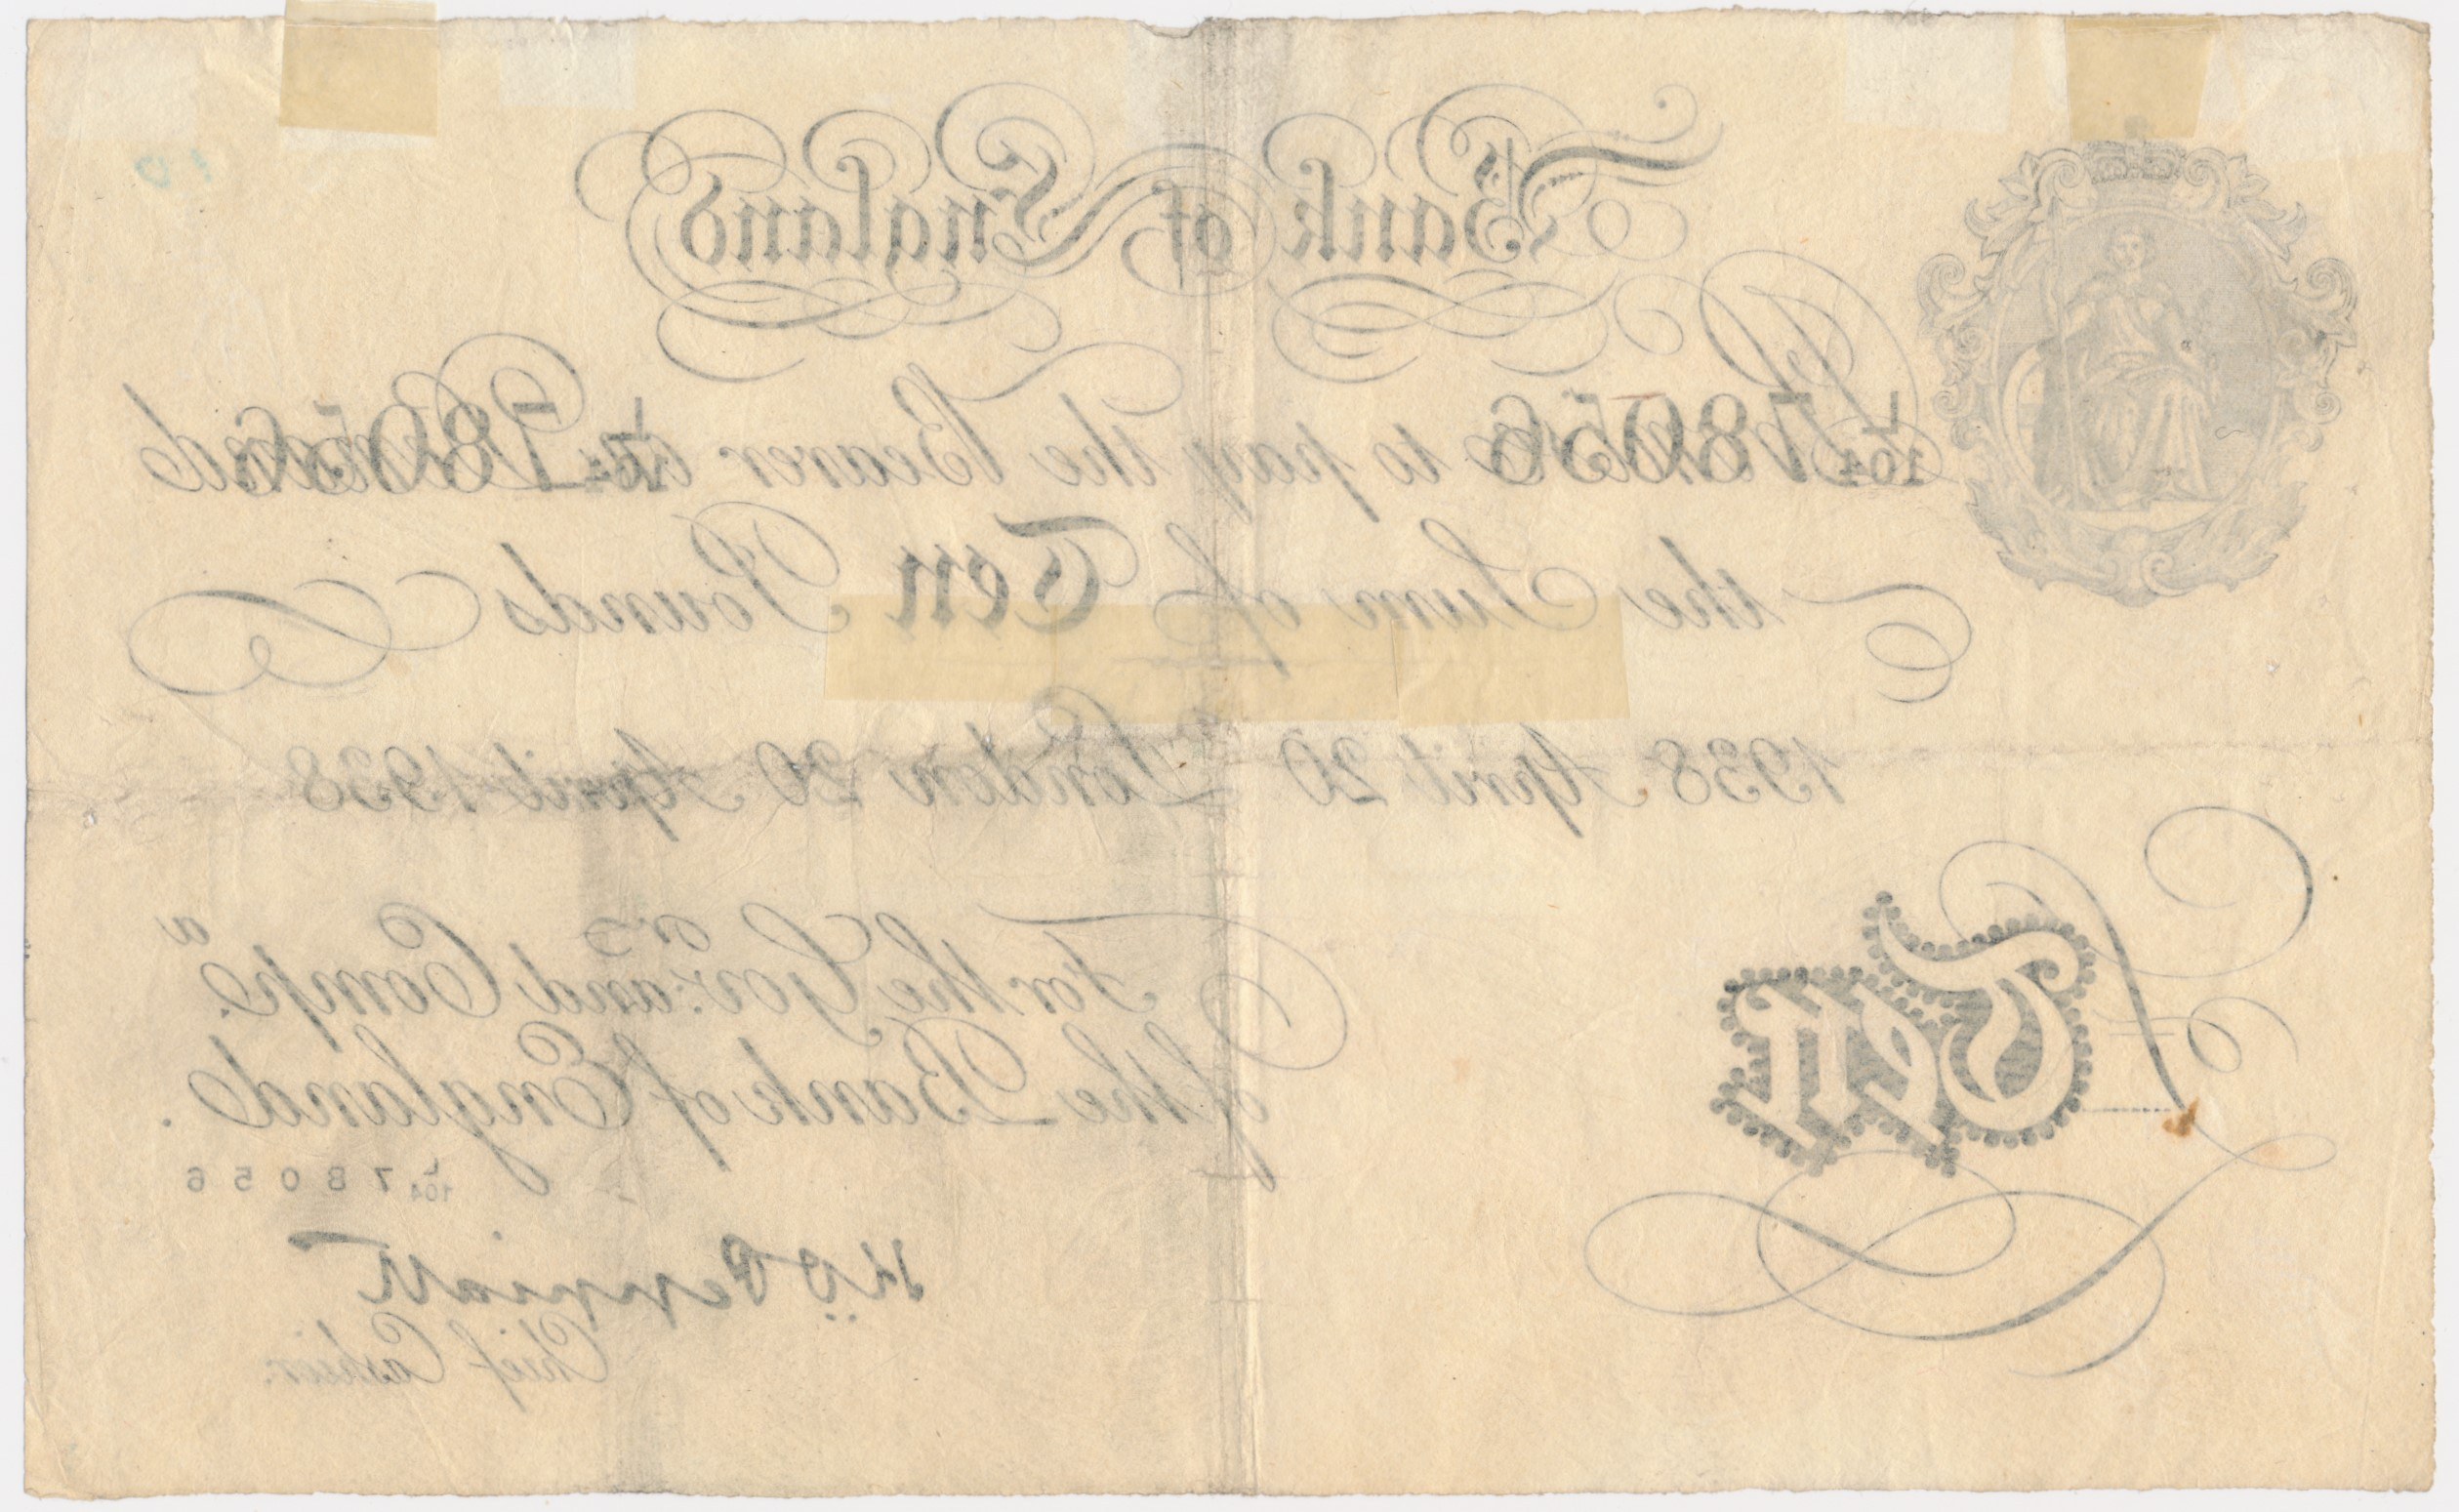 10
Bank of England
L/104 78056 Promise to pay the Bearer on Demand L/104 78056
the Sum of Ten Pounds
1938 April 20 London 20 April 1938
For the Gov:r and Comp.a
of the Bank of England.
L/104 78056
K.O. Peppiatt
Chief Cashier.
Ten